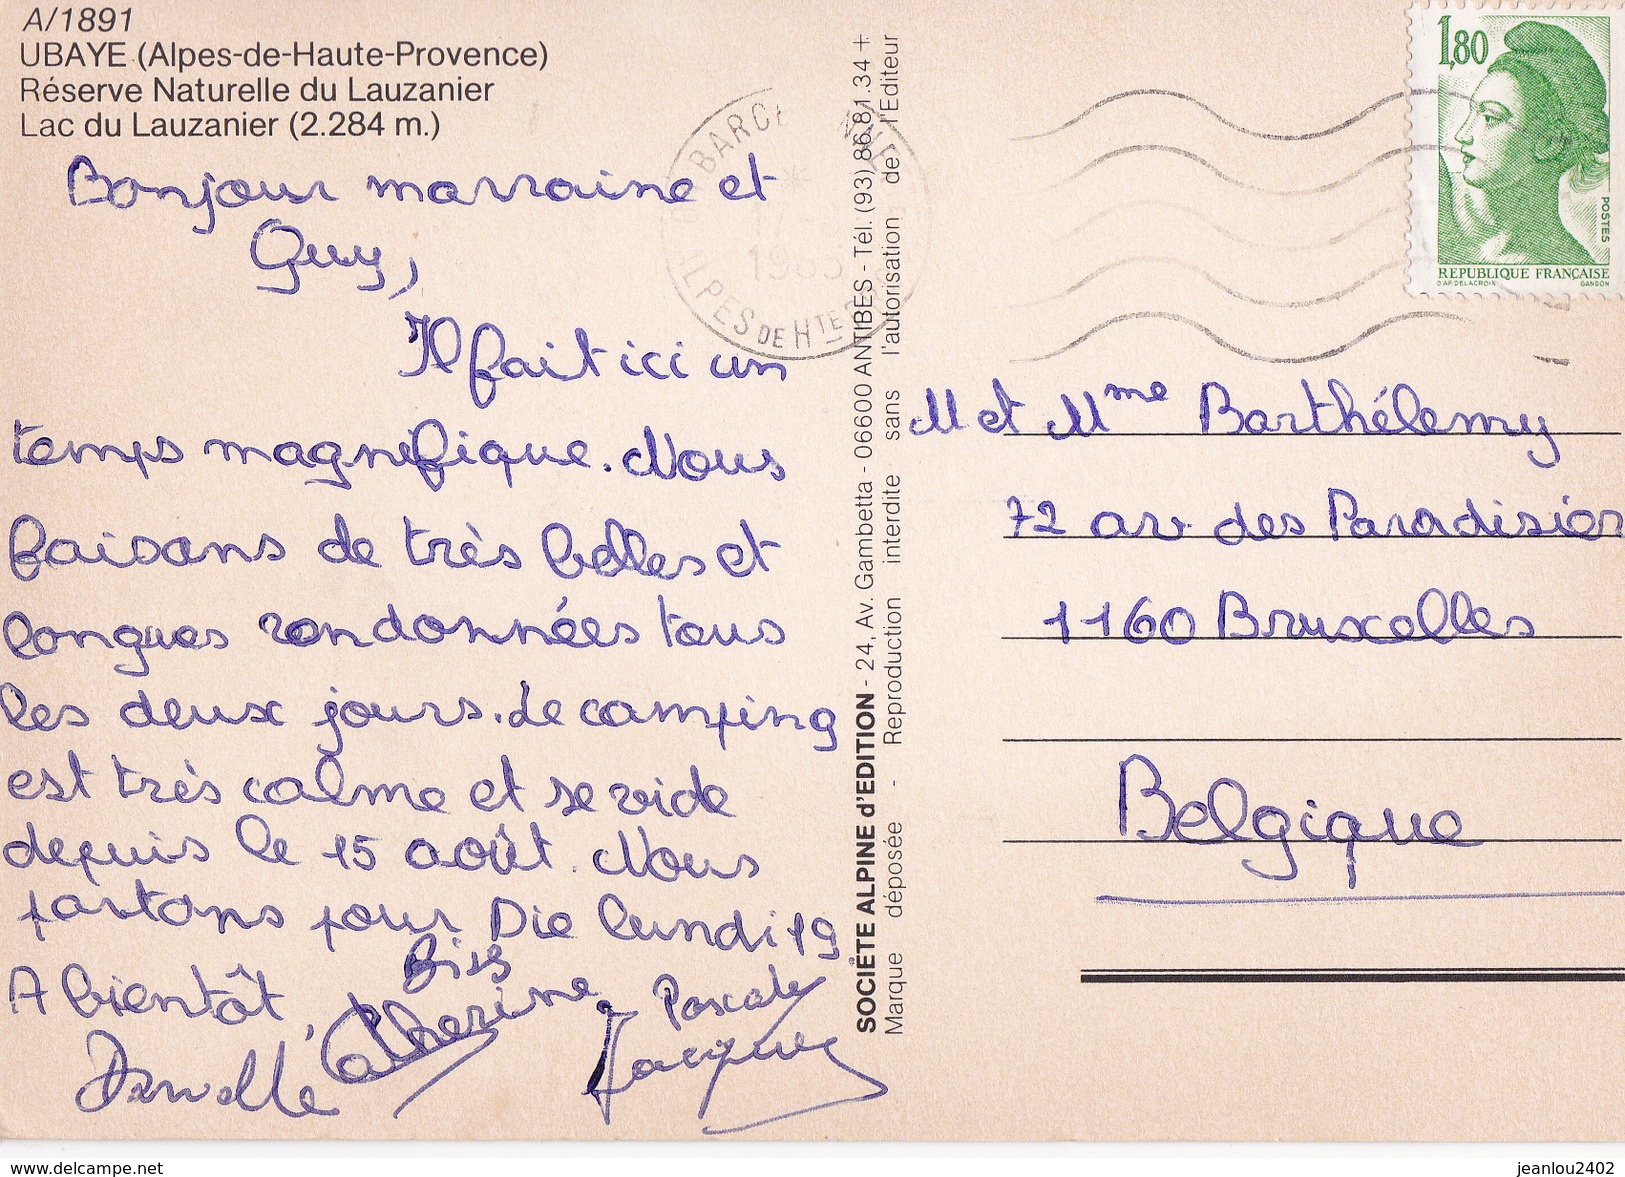 A/1891
UBAYE (Alpes-de-Haute-Provence)
Réserve Naturelle du Lauzanier
Lac du Lauzanier (2.284 m.)
Bonjour marraine et
Guy,
Il fait ici un
temps magnifique. Nous
faisons de très belles et
longues randonnées tous
les deux jours. Le camping
est très calme et se vide
depuis le 15 août. Nous
partons pour Die lundi 19
Bises
A bientôt,
Catherine
Pascale
Jacques
SOCIÉTÉ ALPINE d'EDITION - 24, Av. Gambetta - 06600 ANTIBES - Tél. (93) 86.81.34 +
Marque déposée - Reproduction interdite sans l'autorisation de l'Editeur
ALPES DE HTE P
1,80
POSTES
REPUBLIQUE FRANÇAISE
D'AP. DELACROIX GANDON
M et Mme Barthélemy
72 av. des Paradisier
1160 Bruxelles
Belgique
www.delcampe.net
jeanlou2402